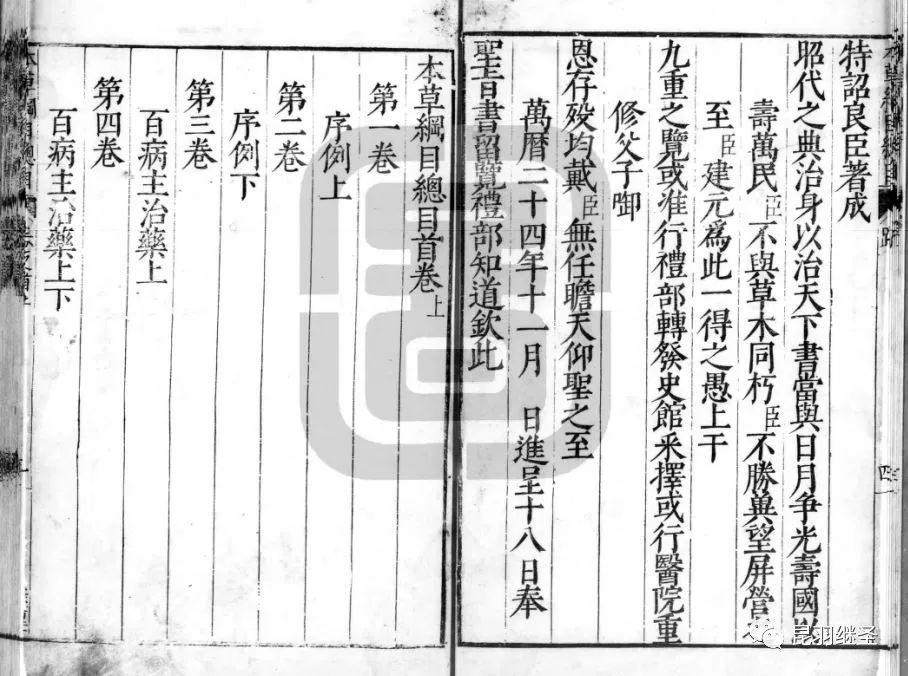 特詔良臣著成
昭代之典治身以治天下書當與日月争光壽國以
壽萬民臣不與草木同朽臣不勝兾望屏營
至臣建元爲此一得之愚上干
九重之覽或准行禮部轉發史館采擇或行醫院重
修父子啣
恩存殁均戴臣無任瞻天仰聖之至
萬曆二十四年十一月 日進呈十八日奉
聖旨書留覽禮部知道欽此
疏
四
本草綱目總目首卷上
第一卷
序例上
第二卷
序例下
第三卷
百病主治藥上
第四卷
百病主治藥上下
昆羽继圣